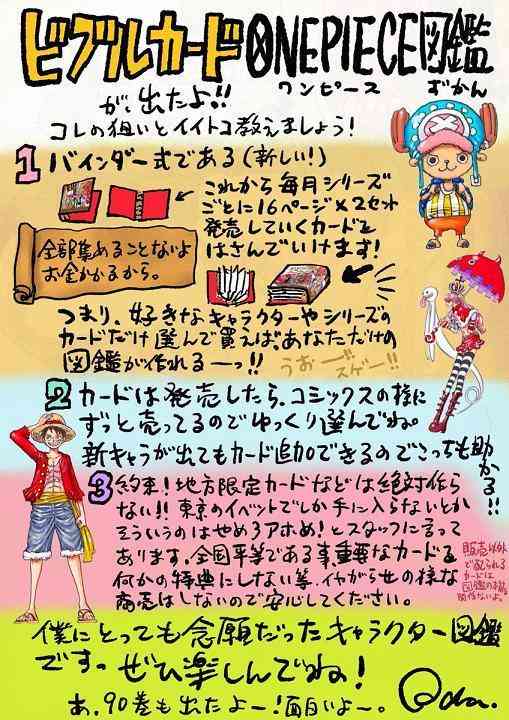 ビブルカードONEPIECE図鑑
ワンピース ずかん
が、出たよ!!
コレの狙いとイイトコ教えましょう!
1 バインダー式である(新しい!)
これから毎月シリーズ
ごとに16ページ×2セット
発売していくカードを
はさんでいけます!
全部集めることないよ
お金かかるから。
つまり、好きなキャラクターやシリーズの
カードだけ選んで買えば、あなただけの
図鑑が作れるーっ!!
うおーースゲー!!
2 カードは発売したら、コミックスの様に
ずっと売ってるのでゆっくり選んでね。
新キャラが出てもカード追加できるのでこっちも助かる!!
3 約束!地方限定カードなどは絶対作ら
ない!!東京のイベントでしか手に入らないとか
そういうのはやめろアホめ!とスタッフに言って
あります。全国平等である事、重要なカードを
何かの特典にしない等、イヤがらせの様な
商売はしないので安心してください。
販売以外
で配られる
カードは
図鑑の本編に
関係ないよ。
僕にとっても念願だったキャラクター図鑑
です。ぜひ楽しんでね!
あ、90巻も出たよー!面白いよー。
Oda.